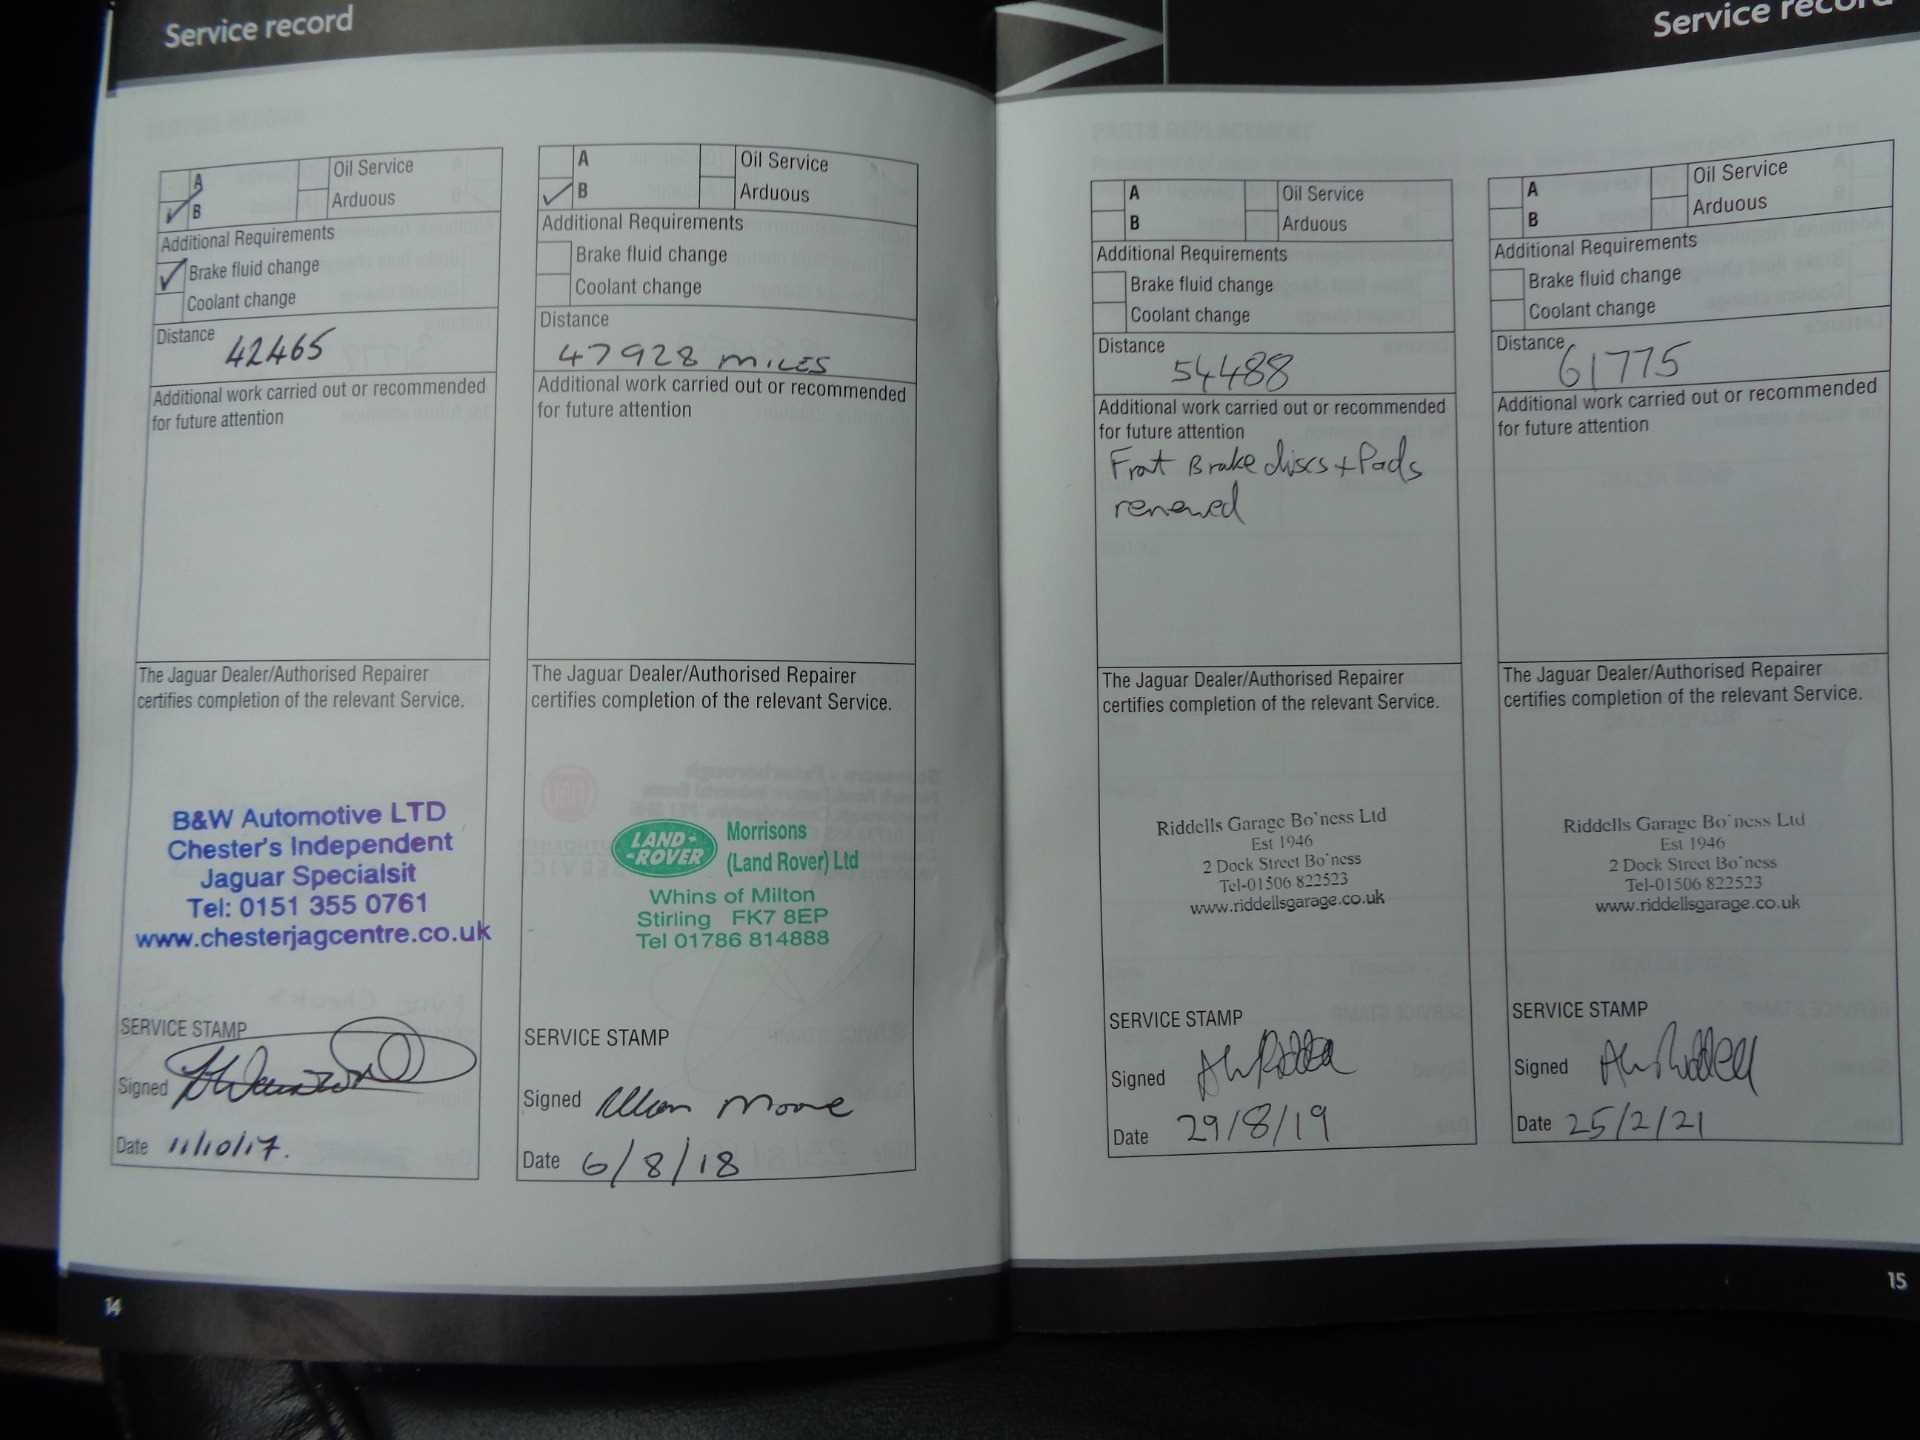 Service record
A
B
Oil Service
Arduous
Additional Requirements
Brake fluid change
Coolant change
Distance
42465
Additional work carried out or recommended
for future attention
The Jaguar Dealer/Authorised Repairer
certifies completion of the relevant Service.
B&W Automotive LTD
Chester's Independent
Jaguar Specialsit
Tel: 0151 355 0761
www.chesterjagcentre.co.uk
SERVICE STAMP
Signed
Date 11/10/17.
A
B
Oil Service
Arduous
Additional Requirements
Brake fluid change
Coolant change
Distance
47928 MILES
Additional work carried out or recommended
for future attention
The Jaguar Dealer/Authorised Repairer
certifies completion of the relevant Service.
LAND-
-ROVER
Morrisons
(Land Rover) Ltd
Whins of Milton
Stirling FK7 8EP
Tel 01786 814888
SERVICE STAMP
Signed
Date 6/8/18
14
Service record
A
B
Oil Service
Arduous
Additional Requirements
Brake fluid change
Coolant change
Distance
54488
Additional work carried out or recommended
for future attention
Front Brake discs + Pads
renewed
The Jaguar Dealer/Authorised Repairer
certifies completion of the relevant Service.
Riddells Garage Bo'ness Ltd
Est 1946
2 Dock Street Bo'ness
Tel-01506 822523
www.riddellsgarage.co.uk
SERVICE STAMP
Signed
Date 29/8/19
A
B
Oil Service
Arduous
Additional Requirements
Brake fluid change
Coolant change
Distance
61775
Additional work carried out or recommended
for future attention
The Jaguar Dealer/Authorised Repairer
certifies completion of the relevant Service.
Riddells Garage Bo'ness Ltd
Est 1946
2 Dock Street Bo'ness
Tel-01506 822523
www.riddellsgarage.co.uk
SERVICE STAMP
Signed
Date 25/2/21
15